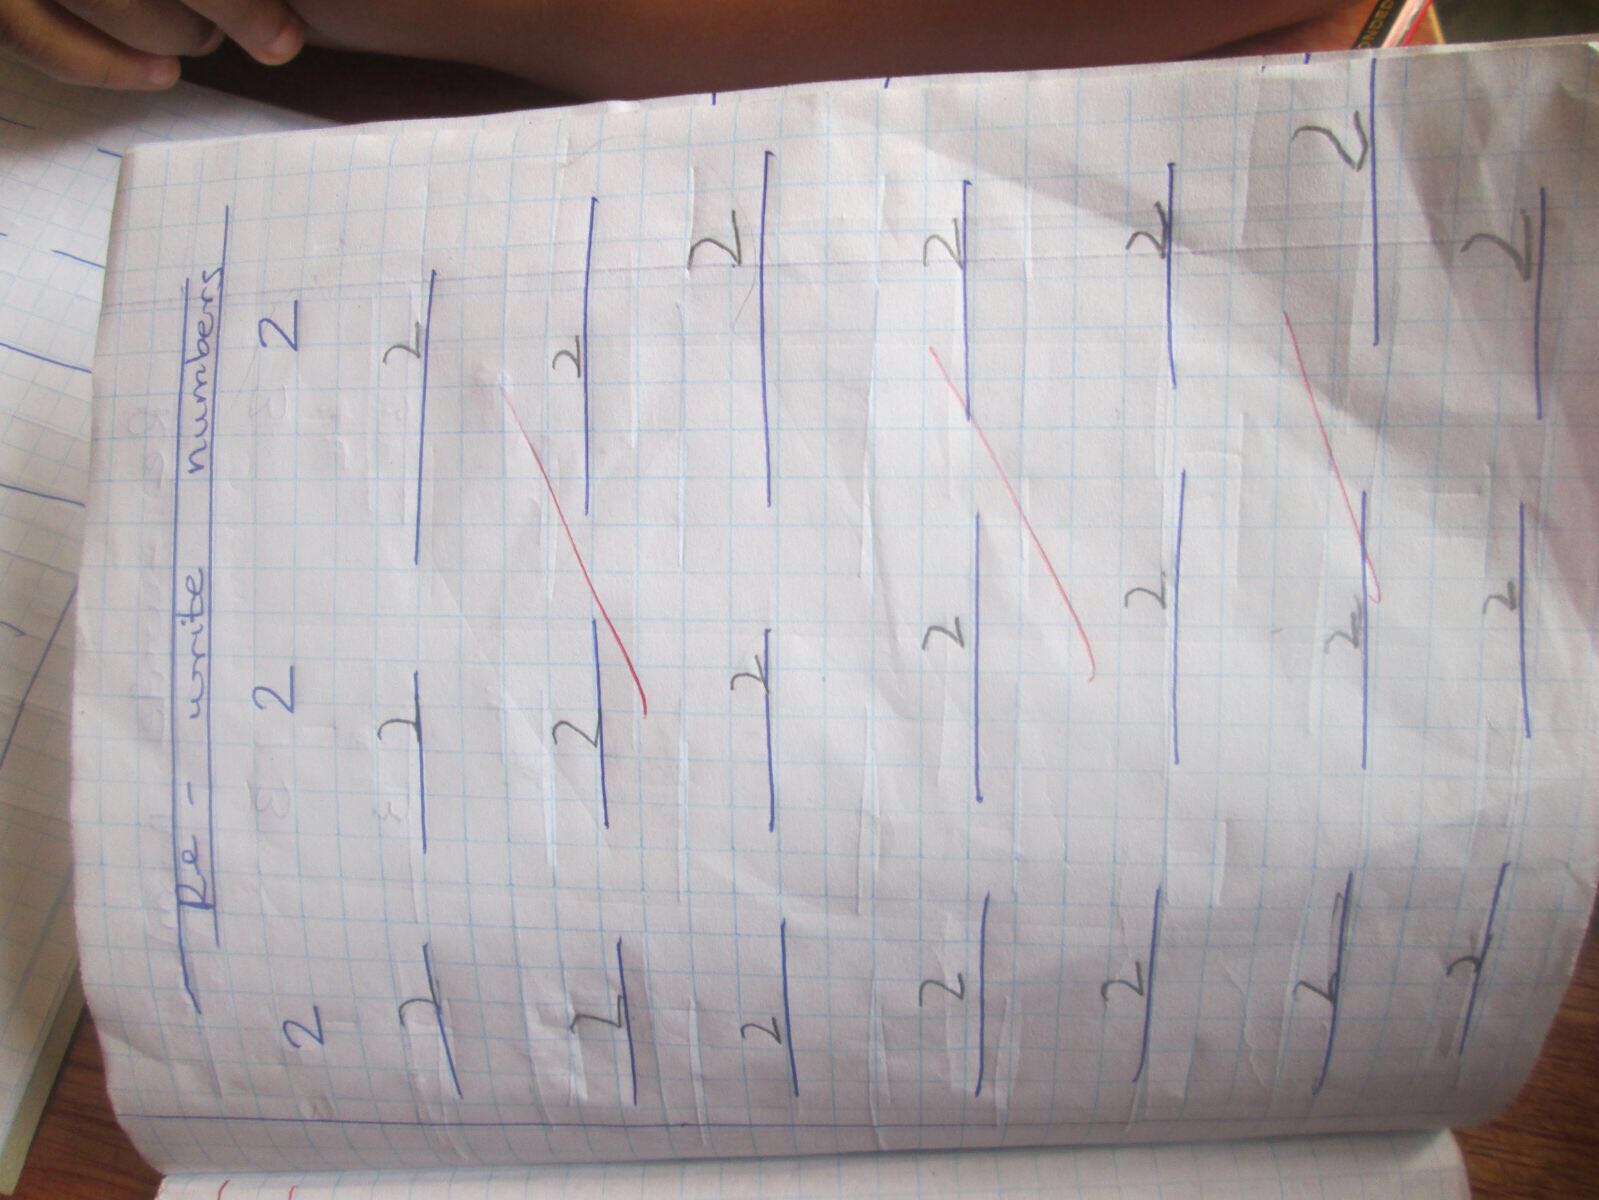 Re - write numbers
2 2 2
2 2 2
2 2 2
2 2 2
2 2 2
2 2 2
2 2 2
2 2 2